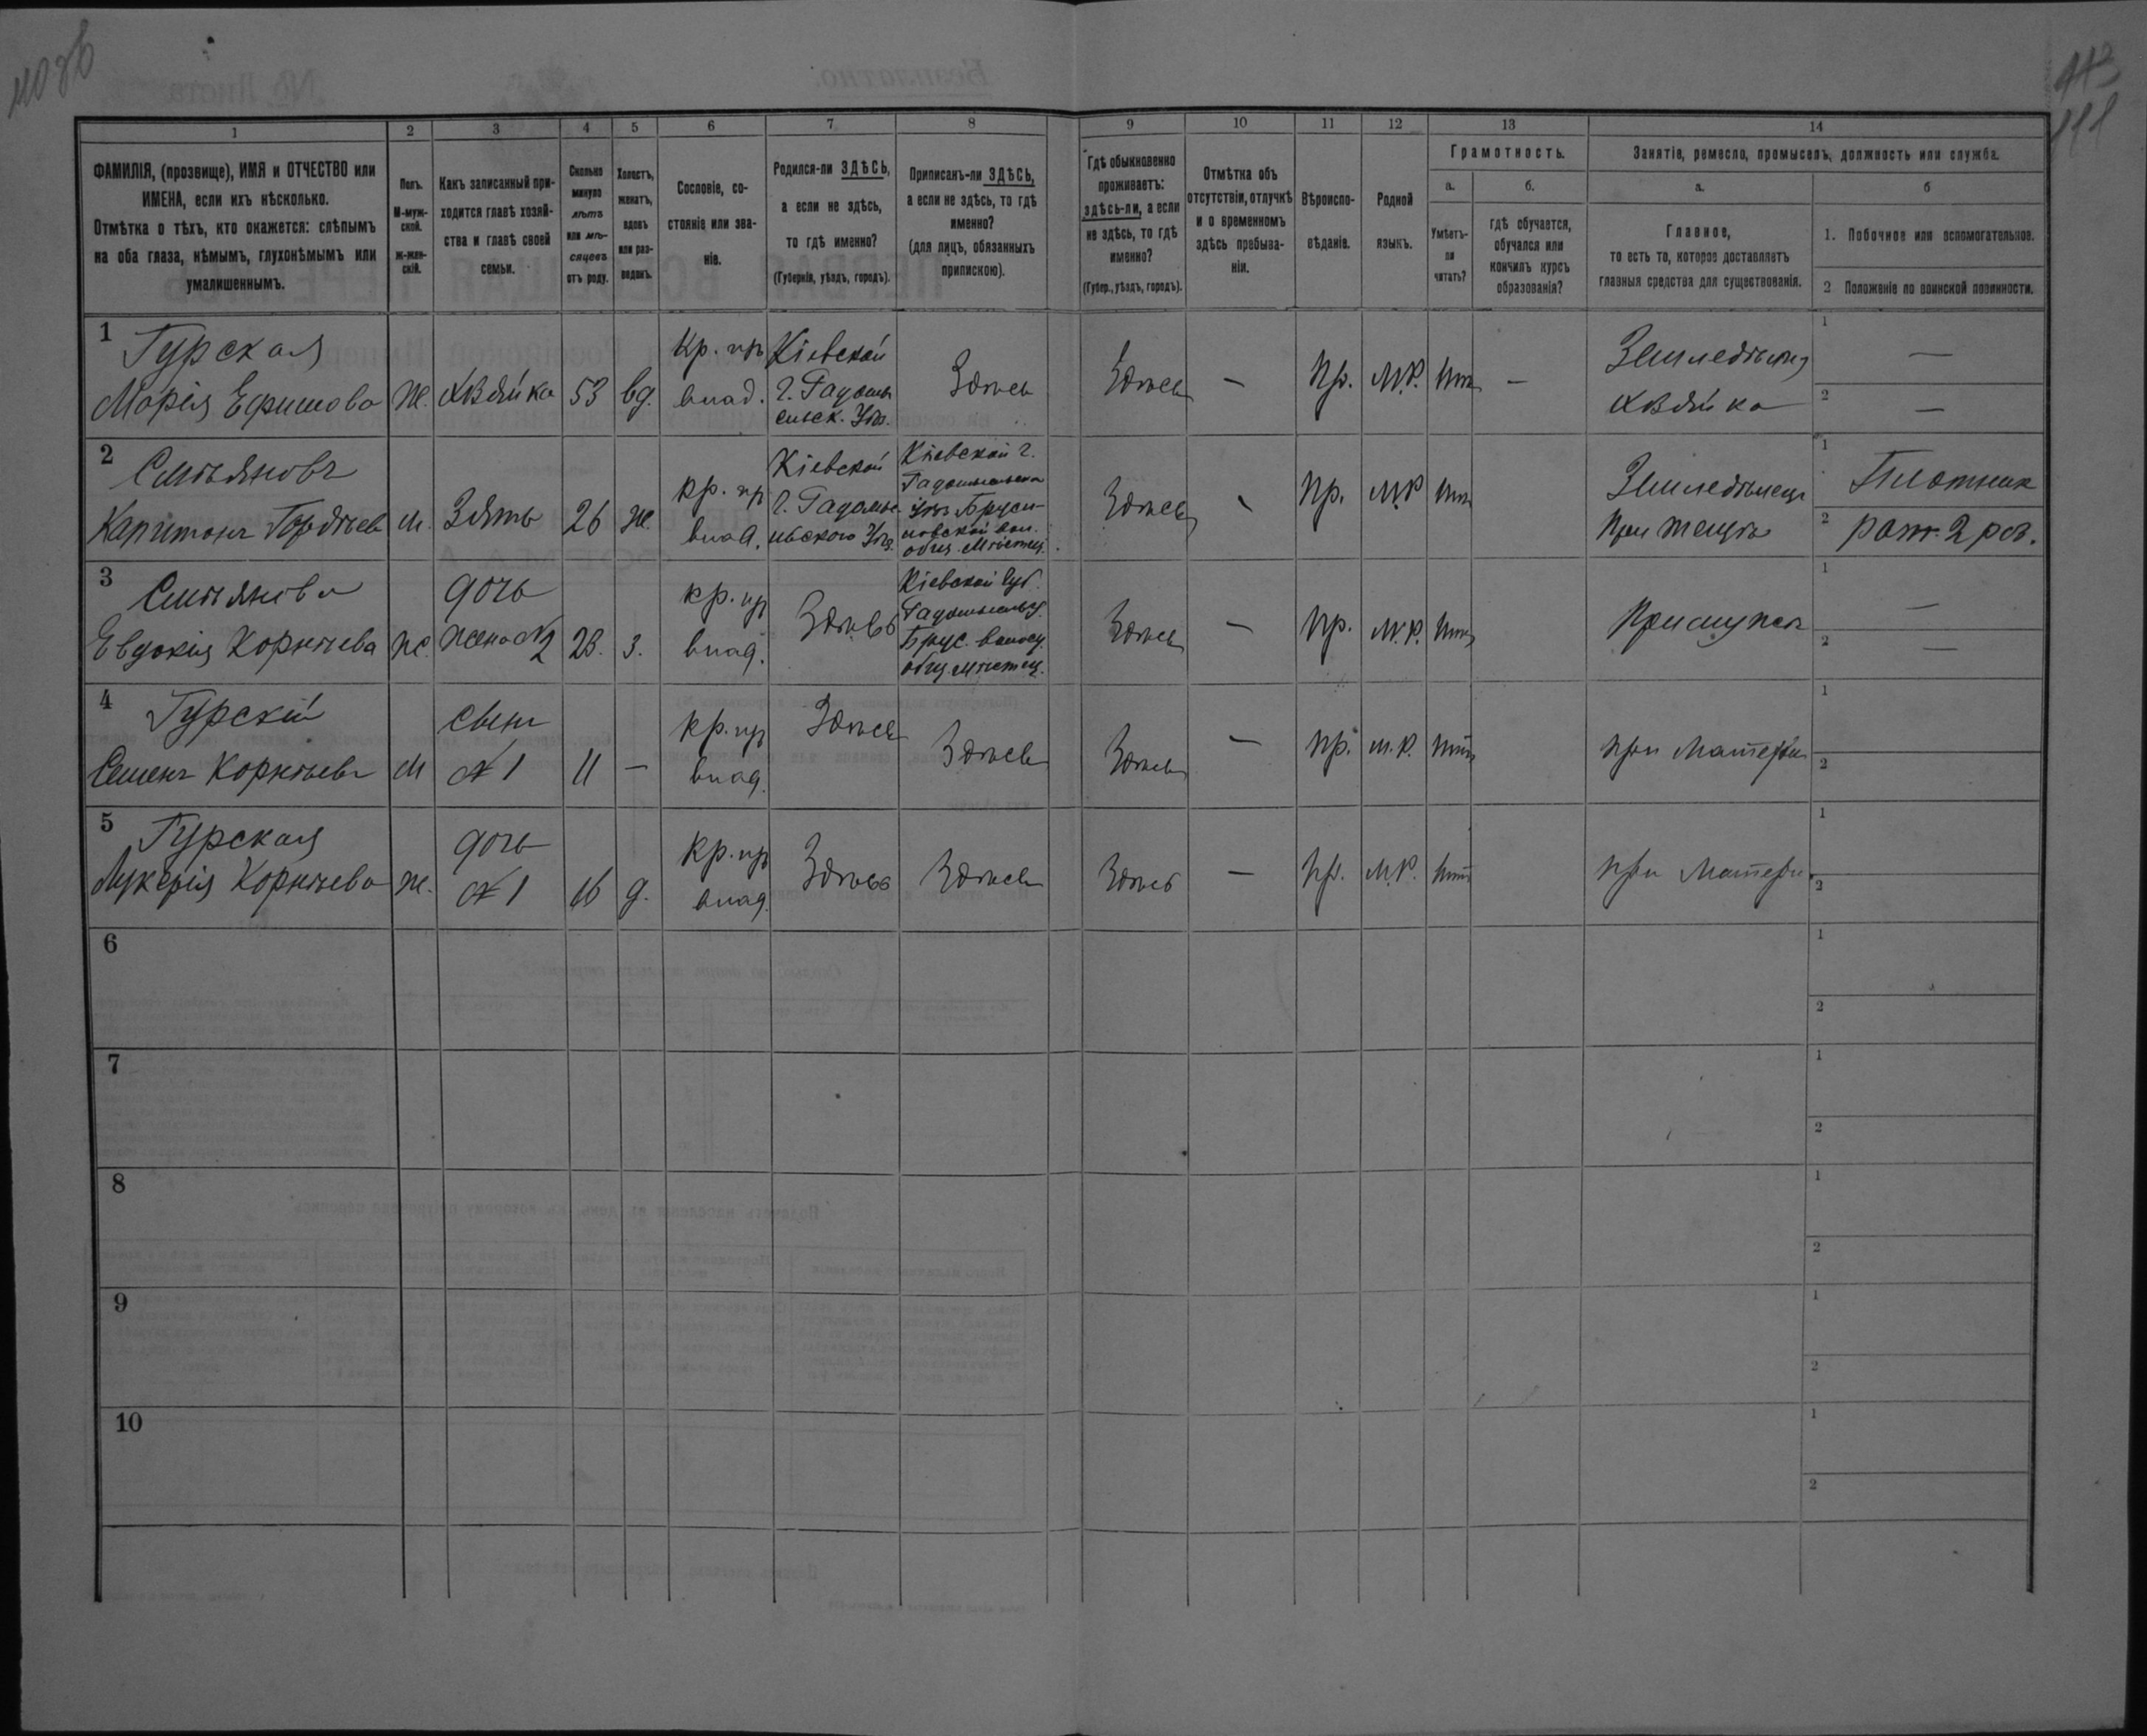 110 об
113
111
1
2
3
4
5
6
7
8
9
10
11
12
13
14
ФАМИЛІЯ, (прозвище), ИМЯ и ОТЧЕСТВО или
ИМЕНА, если ихъ нѣсколько.
Отмѣтка о тѣхъ, кто окажется: слѣпымъ
на оба глаза, нѣмымъ, глухонѣмымъ или
умалишеннымъ.
Полъ.
М-муж-
ской.
ж-жен-
скій.
Какъ записанный при-
ходится главѣ хозяй-
ства и главѣ своей
семьи.
Сколько
минуло
лѣтъ
или мѣ-
сяцевъ
отъ роду.
Холостъ,
женатъ,
вдовъ
или раз-
веденъ.
Сословіе, со-
стояніе или зва-
ніе.
Родился-ли ЗДѢСЬ,
а если не здѣсь,
то гдѣ именно?
(Губернія, уѣздъ, городъ).
Приписанъ-ли ЗДѢСЬ,
а если не здѣсь, то гдѣ
именно?
(для лицъ, обязанныхъ
припискою).
Гдѣ обыкновенно
проживаетъ:
здѣсь-ли, а если
не здѣсь, то гдѣ
именно?
(Губер., уѣздъ, городъ).
Отмѣтка объ
отсутствіи, отлучкѣ
и о временномъ
здѣсь пребыва-
ніи.
Вѣроиспо-
вѣданіе.
Родной
языкъ.
Грамотность.
а.
б.
Умѣетъ-
ли
читать?
гдѣ обучается,
обучался или
кончилъ курсъ
образованія?
Занятіе, ремесло, промыселъ, должность или служба.
а.
б
Главное,
то есть то, которое доставляетъ
главныя средства для существованія.
1. Побочное или вспомогательное.
2 Положеніе по воинской повинности.
1
Гурская
Марія Ефимова
ж.
хзяйка
53
вд.
кр. пр
влад.
Кіевской
г. Радомы
сльск. Узд.
Здѣсь
Здѣсь
—
пр.
м.р.
нѣт
—
хзяйка
1
—
2
—
2
Капитонъ Гордѣев
м.
Зять
26
ж.
кр. пр
влад.
Кіевской
г. Радомы
Кіевской г.
общ.
Здѣсь
пр.
м.р
нѣт
при тещѣ
1
Плотник
2
рат. 2 раз.
3
Евдокія Корнѣева
ж.
дочь
жена №2
23.
з.
кр. пр
влад.
Здѣсь
Кіевской Губ.
Брус. волос.
Здѣсь
—
пр.
м.р.
нѣт
При мужѣ
1
—
2
—
4
Гурскій
Семенъ Корнѣевъ
м
сынъ
№ 1
11
—
кр. пр
влад.
Здѣсь
Здѣсь
Здѣсь
—
пр.
м.р.
нѣт
при Матери
1
2
5
Гурская
Лукерія Корнѣева
ж.
дочь
№ 1
16
д.
кр. пр
влад.
Здѣсь
Здѣсь
Здѣсь
—
пр.
м.р.
нѣт
при Матери
1
2
6
1
2
7
1
2
8
1
2
9
1
2
10
1
2